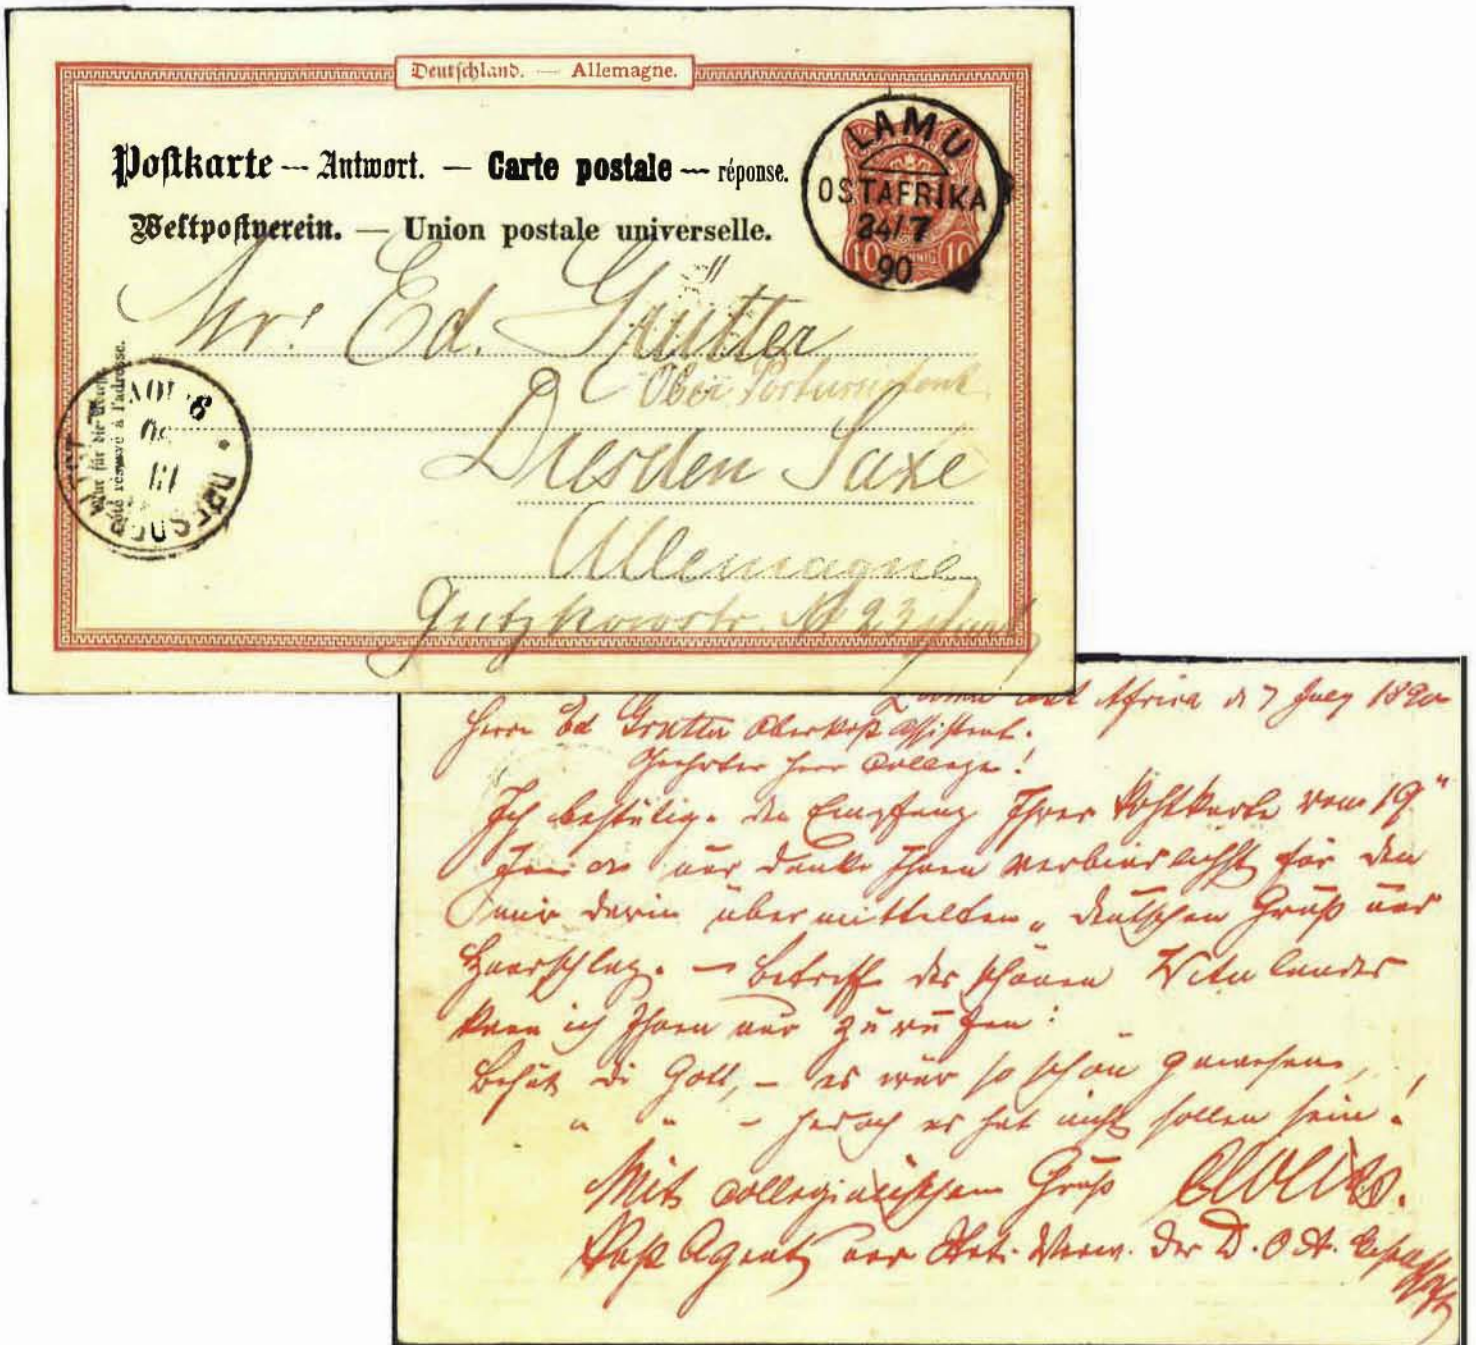 Deutschland. — Allemagne.
Postkarte — Antwort. — Carte postale — réponse.
Weltpostverein. — Union postale universelle.
LAMU
OSTAFRIKA
24/7
90
10 10
Mr. Ed. Grütter
Ober
Dresden Saxe
Allemagne
Gutzkowstr. № 23
Nur für die
Côté réservé à l'adresse.
DRESDEN ALTST.
Afrika d 7 July 1890
Herrn Ed Grütter Oberpost Assistent.
Geehrter Herr College!
Ich bestätige den Empfang Ihrer Postkarte vom 19"
und danke Ihnen verbindlichst für den
mir darin übermittelten „deutschen Gruß und
Handschlag. — Betreff des schönen Witu landes
kann ich Ihnen nur zurufen:
Behüt di Gott, — es wär so schön gewesen,
" " — jedoch es hat nicht sollen sein!
Mit collegialischem Gruß
Post Agent und der D. O. A.